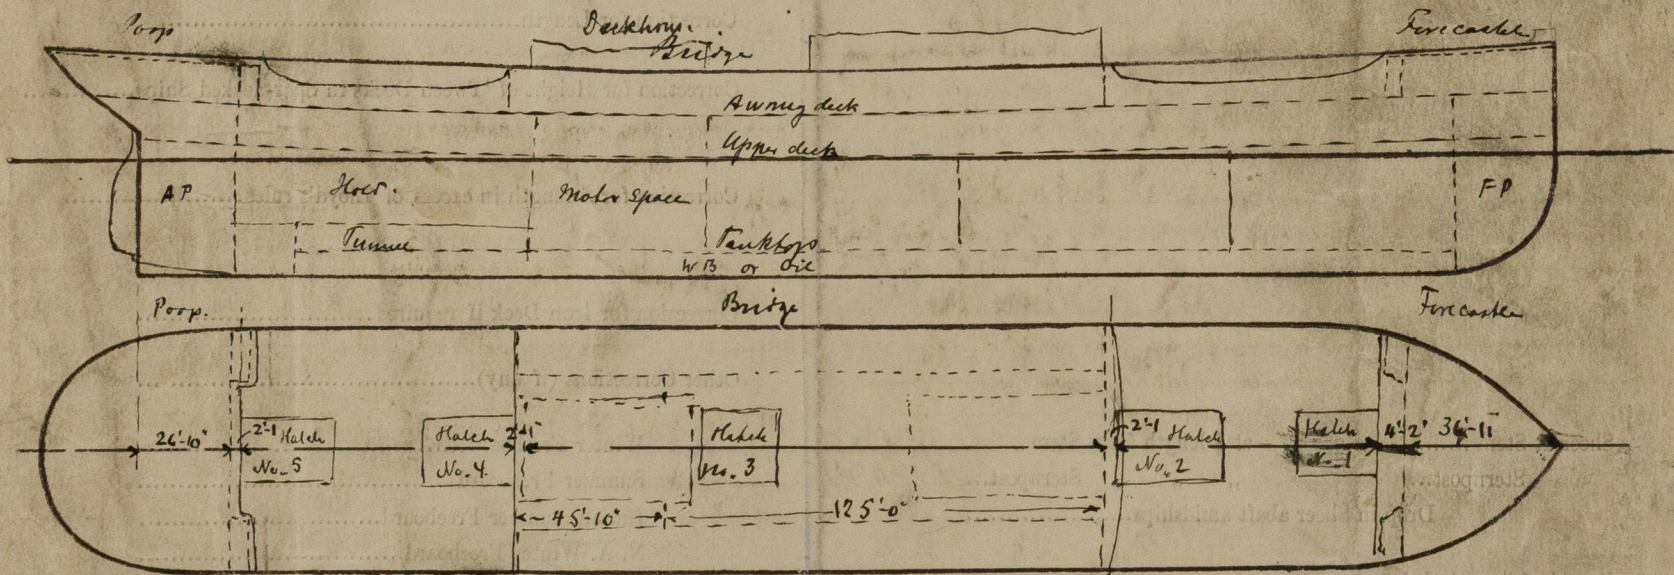 Poop
Deckhouse.
Bridge
Forecastle
Awning deck
Upper deck
AP
Hold.
Motor Space
FP
Tunnel
Tanktops
WB or Oil
Poop.
Bridge
Forecastle
26'-10"
2'-1
Hatch
No. 5
Hatch
No. 4.
2'-1"
Hatch
No. 3
2'-1
Hatch
No. 2
Hatch
No. 1
4'-2'
36'-11
45'-10"
125'-0"